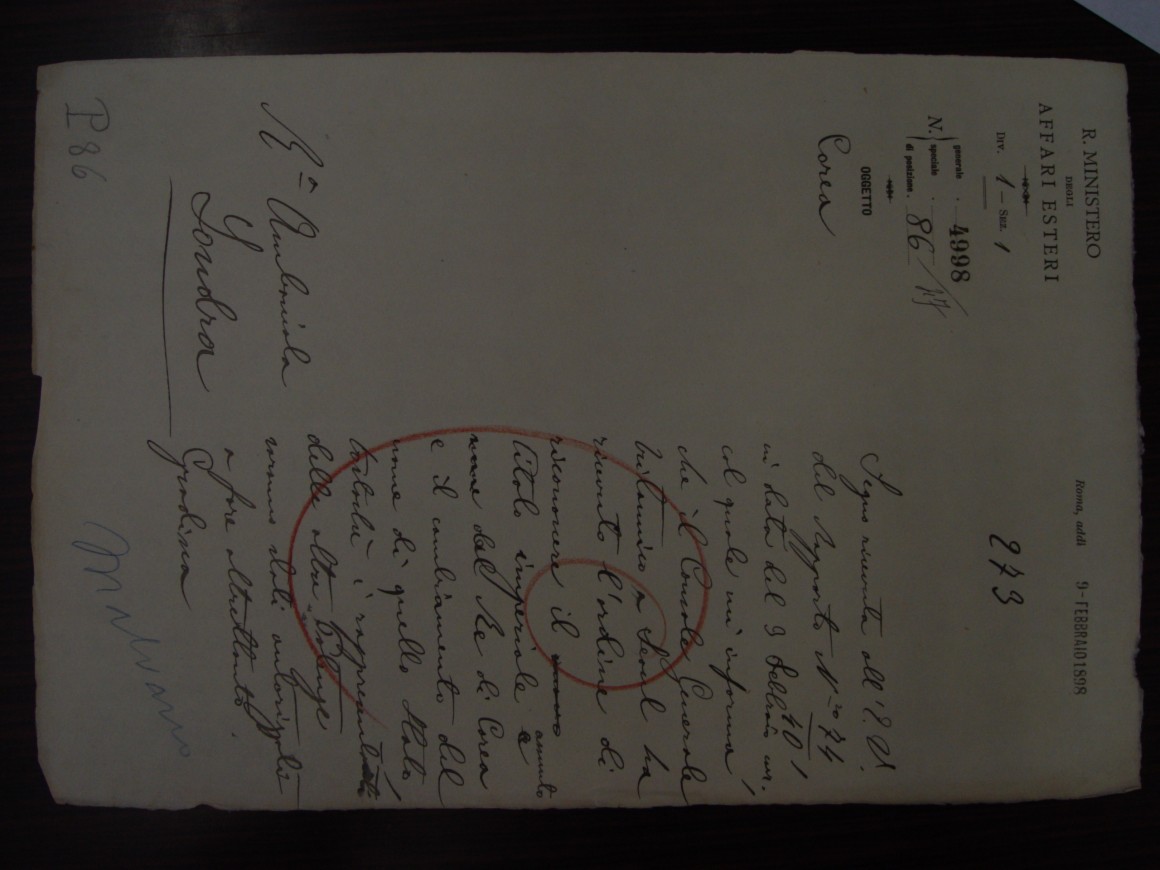 R. MINISTERO
DEGLI
AFFARI ESTERI
DIV. 1 - SEZ. 1
N. generale . 4998
speciale .
di posizione . 86/
OGGETTO
Corea
Roma, addì 9-FEBBRAIO 1898
273
Segno ricevuta all'E. V.
del Rapporto N° 71/40,
in data del 3 febbraio
col quale mi informa,
che il Console Generale
britannico a Seoul ha
ricevuto l'ordine di
riconoscere il
titolo imperiale assunto
dal Re di Corea
e il cambiamento del
nome di quello Stato,
i rappresentanti
delle altre
autorizzati
a fare altrettanto.
Gradisca
Rª Ambasciata
Londra
P 86